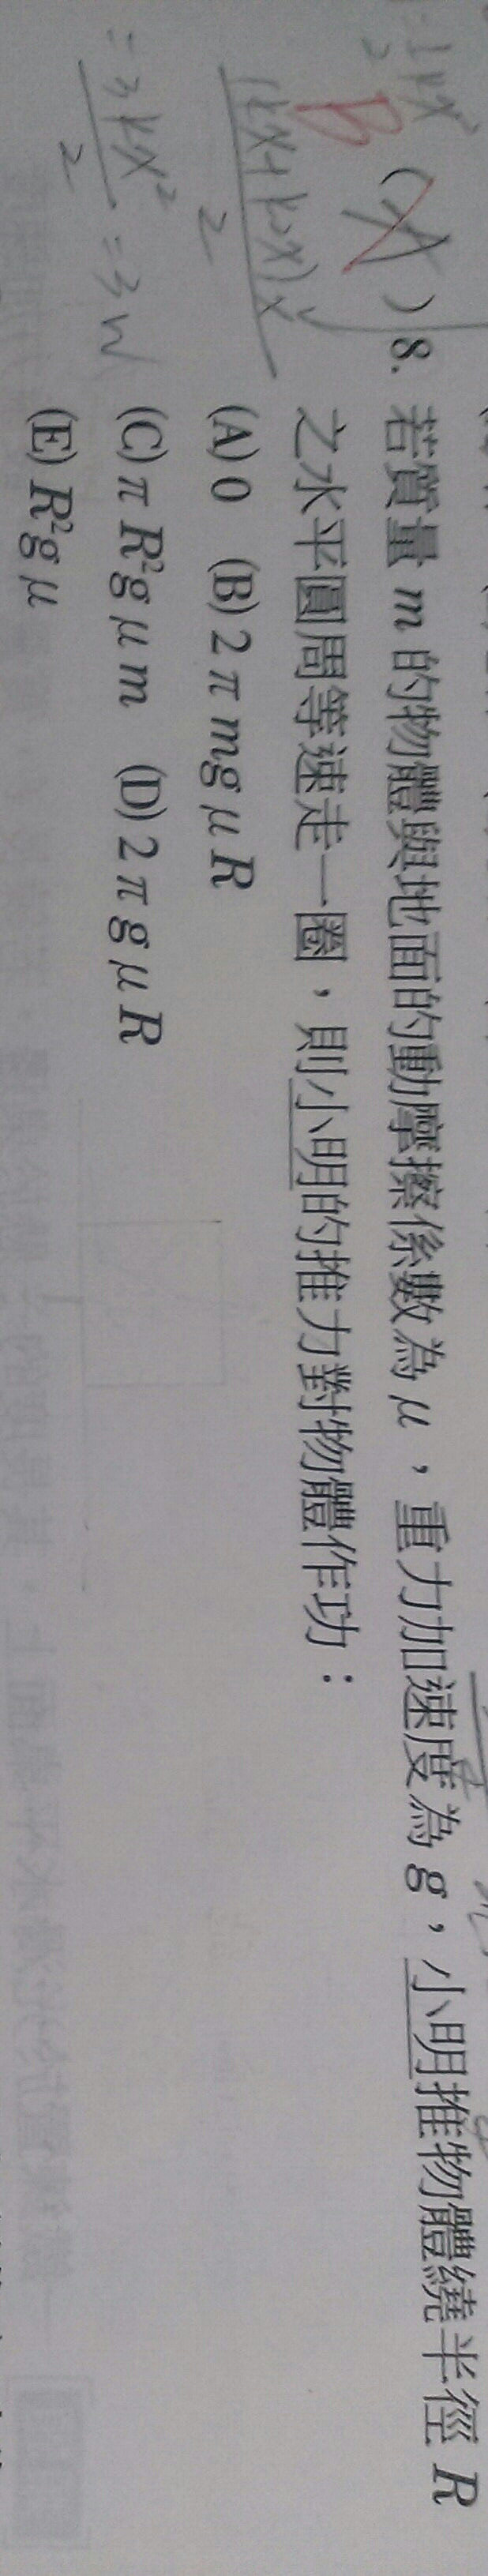 (A) 8. 若質量 m 的物體與地面的動摩擦係數為 μ，重力加速度為 g，小明推物體繞半徑 R
之水平圓周等速走一圈，則小明的推力對物體作功：
(A) 0 (B) 2 π mg μ R
(C) π R²g μ m (D) 2 π g μ R
(E) R²g μ
B
(kx+k2x)x
2
= 3kx²
2
= 3W